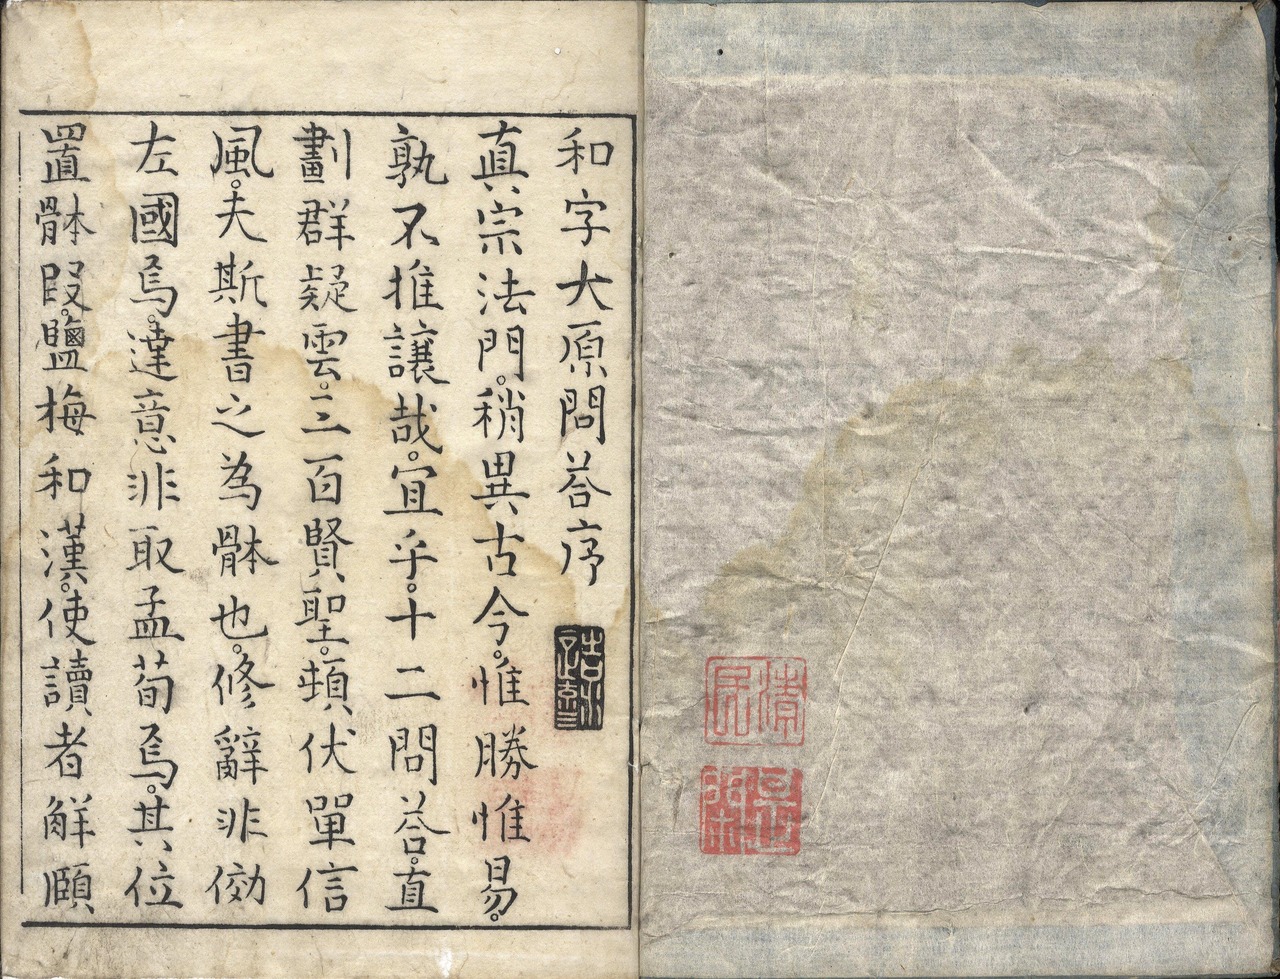 和字大原問荅序
真宗法門。稍異古今。惟勝惟易。
孰不推讓哉。宜乎。十二問荅。直
劃群疑雲。一二三百賢聖。頻伏單信
風。夫斯書之為骵也。修辭非効
左國焉。達意非取孟荀焉。其位
置骵叚。鹽梅和漢。使讀者觧頤